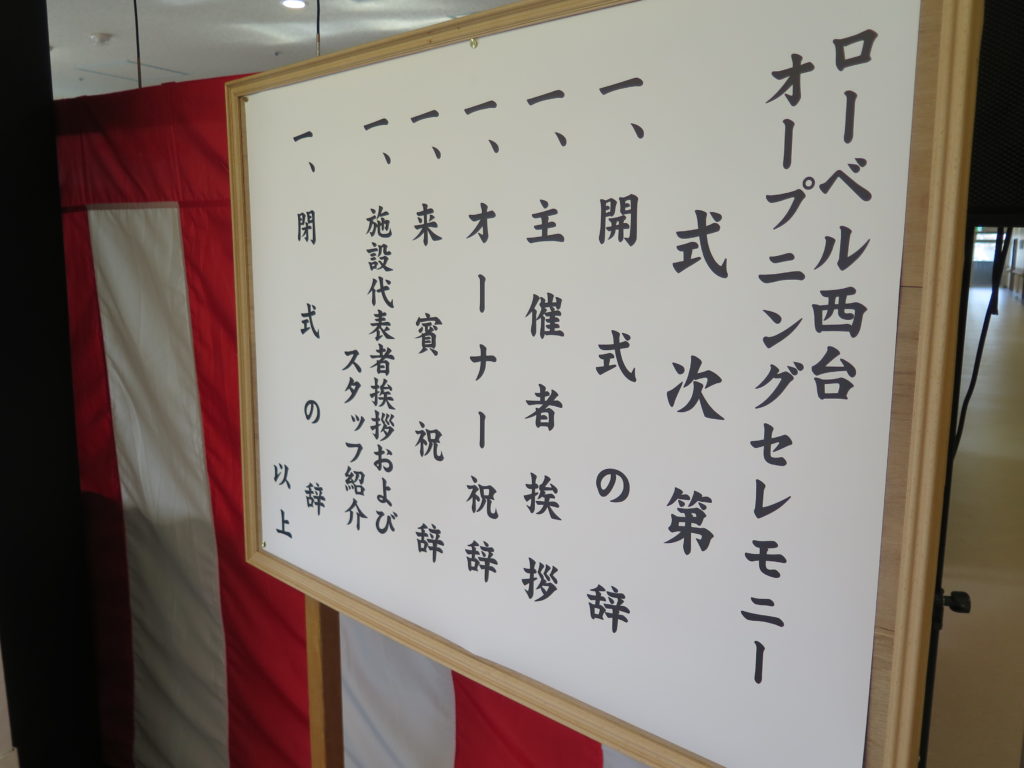 ローベル西台
オープニングセレモニー
式次第
一、開式の辞
一、主催者挨拶
一、オーナー祝辞
一、来賓祝辞
一、施設代表者挨拶および
スタッフ紹介
一、閉式の辞
以上